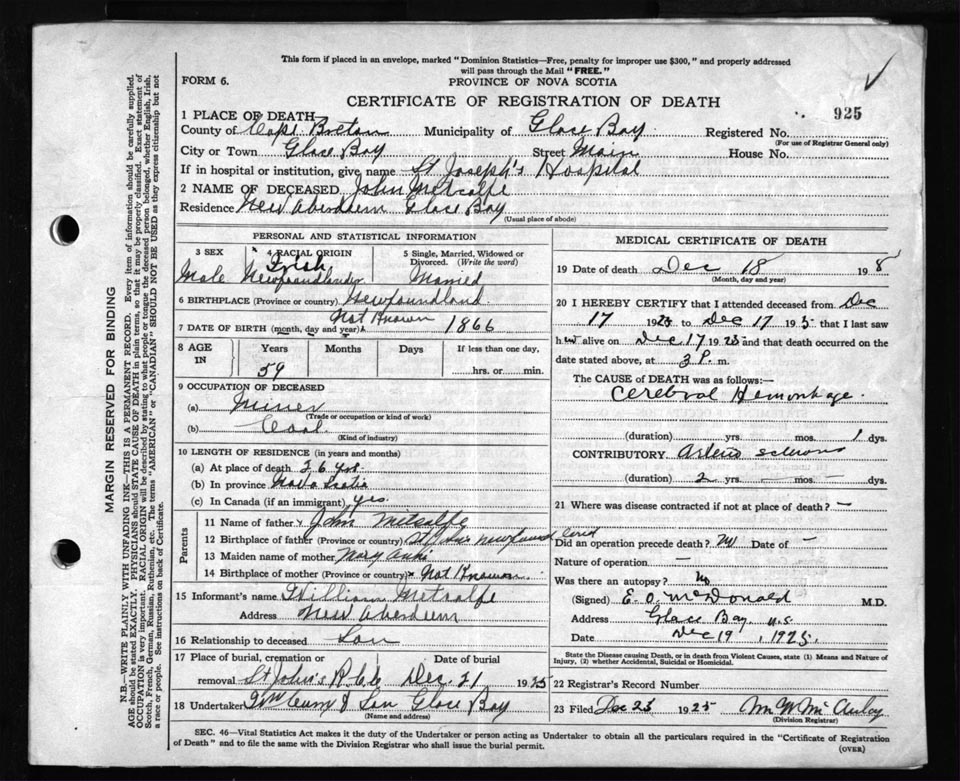 This form if placed in an envelope, marked "Dominion Statistics—Free, penalty for improper use $300," and properly addressed
will pass through the Mail "FREE."
FORM 6.
PROVINCE OF NOVA SCOTIA
CERTIFICATE OF REGISTRATION OF DEATH
925
1 PLACE OF DEATH—
County of Cape Breton Municipality of Glace Bay Registered No.
(For use of Registrar General only)
City or Town Glace Bay Street Main House No.
If in hospital or institution, give name St Joseph's Hospital
2 NAME OF DECEASED John Metcalfe
Residence New Aberdeen Glace Bay
(Usual place of abode)
PERSONAL AND STATISTICAL INFORMATION
3 SEX Male
4 RACIAL ORIGIN Irish Newfoundlander
5 Single, Married, Widowed or Divorced. (Write the word) Married
6 BIRTHPLACE (Province or country) Newfoundland
7 DATE OF BIRTH (month, day and year) Not Known 1866
8 AGE IN Years Months Days If less than one day,
59 hrs. or min.
9 OCCUPATION OF DECEASED
(a) Miner
(Trade or occupation or kind of work)
(b) Coal
(Kind of industry)
10 LENGTH OF RESIDENCE (in years and months)
(a) At place of death 26 yrs.
(b) In province Nova Scotia
(c) In Canada (if an immigrant) yes.
Parents
11 Name of father John Metcalfe
12 Birthplace of father (Province or country) St John's Newfoundland
13 Maiden name of mother Mary
14 Birthplace of mother (Province or country) Not Known
15 Informant's name William Metcalfe
Address New Aberdeen
16 Relationship to deceased Son
17 Place of burial, cremation or Date of burial
removal St John's Dec. 21 1925
18 Undertaker & Son Glace Bay
(Name and address)
MEDICAL CERTIFICATE OF DEATH
19 Date of death Dec 18 198
(Month, day and year)
20 I HEREBY CERTIFY that I attended deceased from Dec
17 1925 to Dec 17 1925 that I last saw
him alive on Dec. 17 1925 and that death occurred on the
date stated above, at 3 P. m.
The CAUSE of DEATH was as follows:—
Cerebral Hemorrhage.
(duration) yrs. mos. 1 dys.
CONTRIBUTORY Arterio sclerosis
(duration) 2 yrs. — mos. — dys.
21 Where was disease contracted if not at place of death? —
Did an operation precede death? No Date of —
Nature of operation —
Was there an autopsy? No
(Signed) E. O. McDonald M.D.
Address Glace Bay N.S.
Date Dec 19, 1925.
State the Disease causing Death, or in death from Violent Causes, state (1) Means and Nature of
Injury, (2) whether Accidental, Suicidal or Homicidal.
22 Registrar's Record Number
23 Filed Dec 23 1925
(Division Registrar)
SEC. 46—Vital Statistics Act makes it the duty of the Undertaker or person acting as Undertaker to obtain all the particulars required in the "Certificate of Registration
of Death" and to file the same with the Division Registrar who shall issue the burial permit.
(OVER)
MARGIN RESERVED FOR BINDING
N.B.—WRITE PLAINLY WITH UNFADING INK—THIS IS A PERMANENT RECORD. Every item of information should be carefully supplied.
AGE should be stated EXACTLY. PHYSICIANS should STATE CAUSE OF DEATH in plain terms, so that it may be properly classified. Exact statement of
OCCUPATION is very important. RACIAL ORIGIN will be described by stating to what people or tongue the deceased person belonged, whether English, Irish,
Scotch, French, German, Russian, Ruthenian, etc. The terms "AMERICAN" or "CANADIAN" SHOULD NOT BE USED as they express citizenship but not
a race or people. See instructions on back of Certificate.